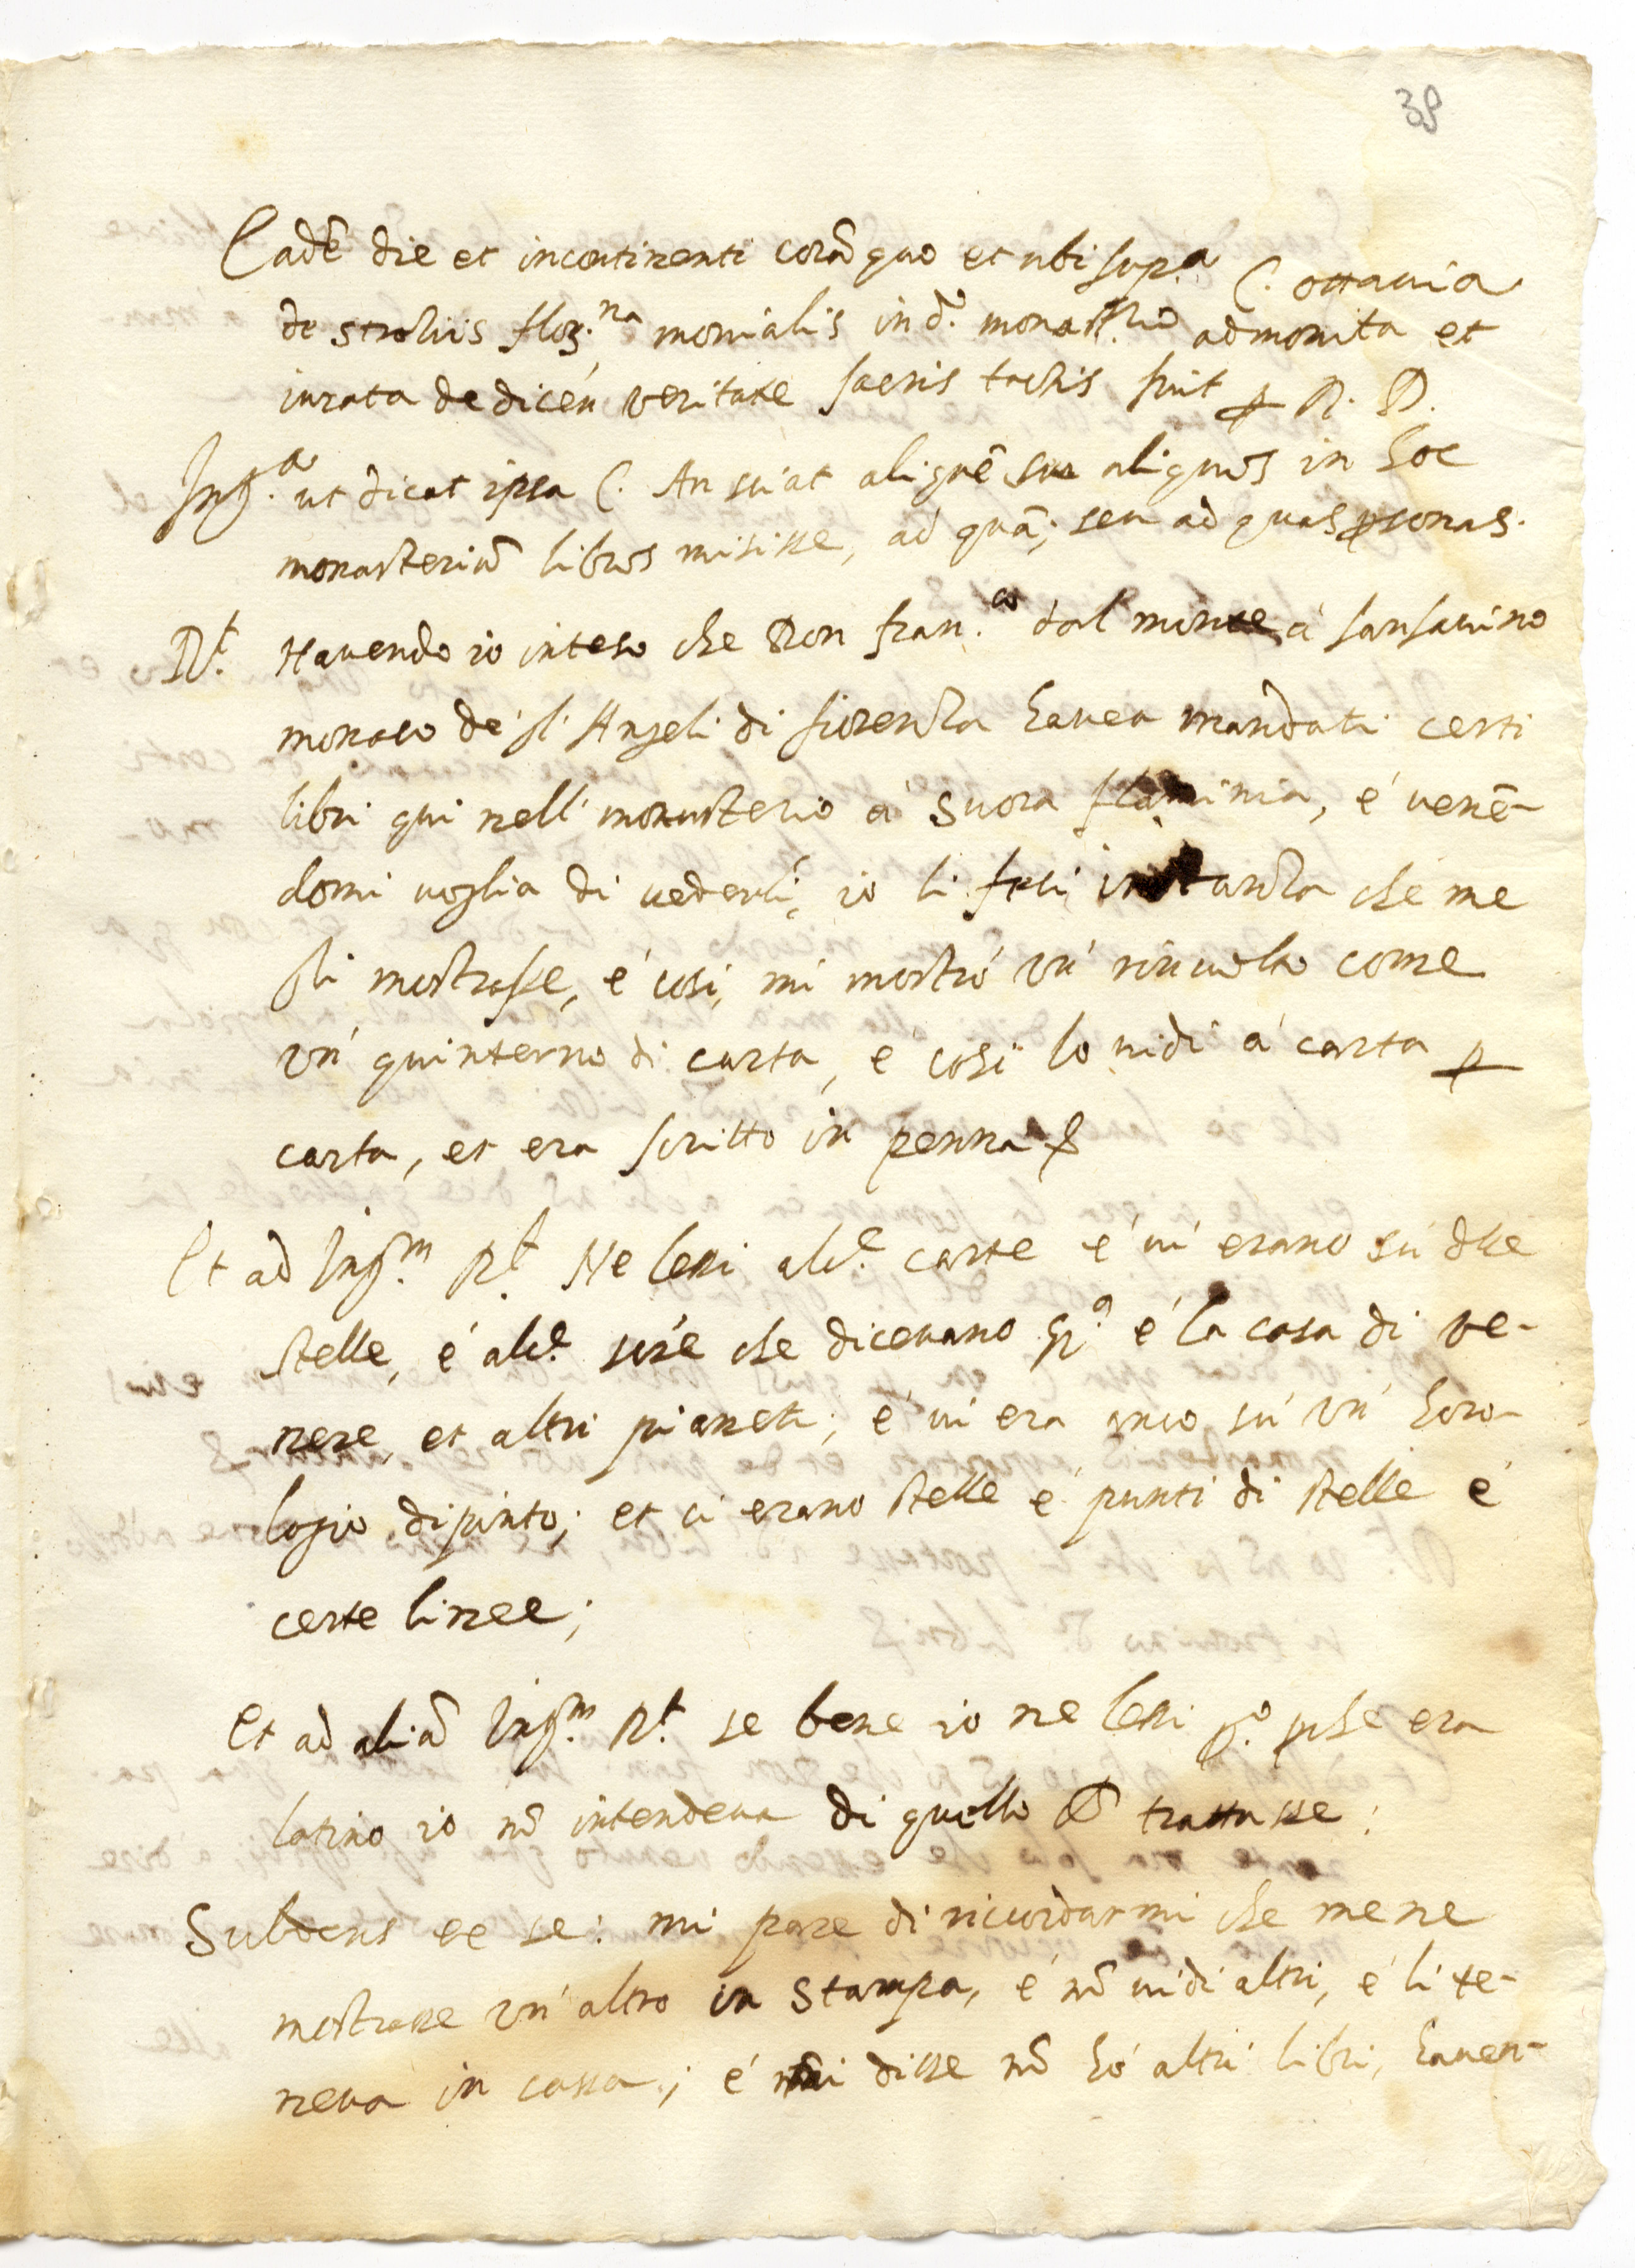 38
Eadē die et incontinenti corā quo et ubi sup.a C. ottauia
de strohis flor.na monialis in d.o monast.rio admonita et
iurata de dicen' veritate sacris tactis fuit p R. D.
Int.a ut dicat ipsa C. An sciat aliquē seu aliquos in hoc
monasteriū libros misisse, ad quā; seu ad quas psonas.
R.t Hauendo io inteso che Don fran.co dal monte à sansauino
monaco de gl' Angeli di fiorenza hauea mandati certi
libri qui nell' monasterio à suora flaminia, e' uenē-
domi uoglia di uederli, io li feci instanza che me
gli mostrasse, e' cosi, mi mostrò un' rinuolto come
un' quinterno di carta, e cosi lo uidi à carta p
carta, et era scritto in penna
Et ad Int.m R.t Ne lessi alc.e carte e' ui' erano su' dlle
stelle, e' alc.e sere che diceuano q.a e' la casa di ve-
nere, et altri pianeti; e' ui era anco su' un' horo-
logio dipinto; et ci erano stelle e' punti di stelle e'
certe linee;
Et ad aliā Int.m R.t se bene io ne lessi p.o pche era
latino io nō intendeua di quello trattasse:
Subdens ex se: mi pare di ricordarmi che me ne
mostrasse un' altro in stampa, e' nō uidi altri, e' li te-
neua in cassa; e' mi disse nō hò altri libri, hauen-